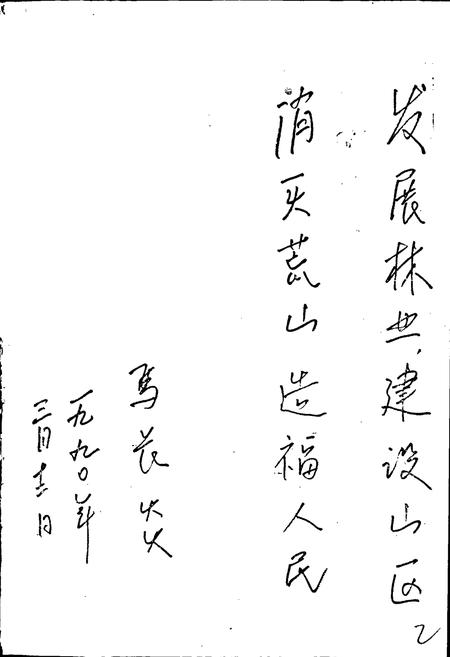 发展林业建设山区
消灭荒山造福人民
马长炎
一九九〇年
三月十二日